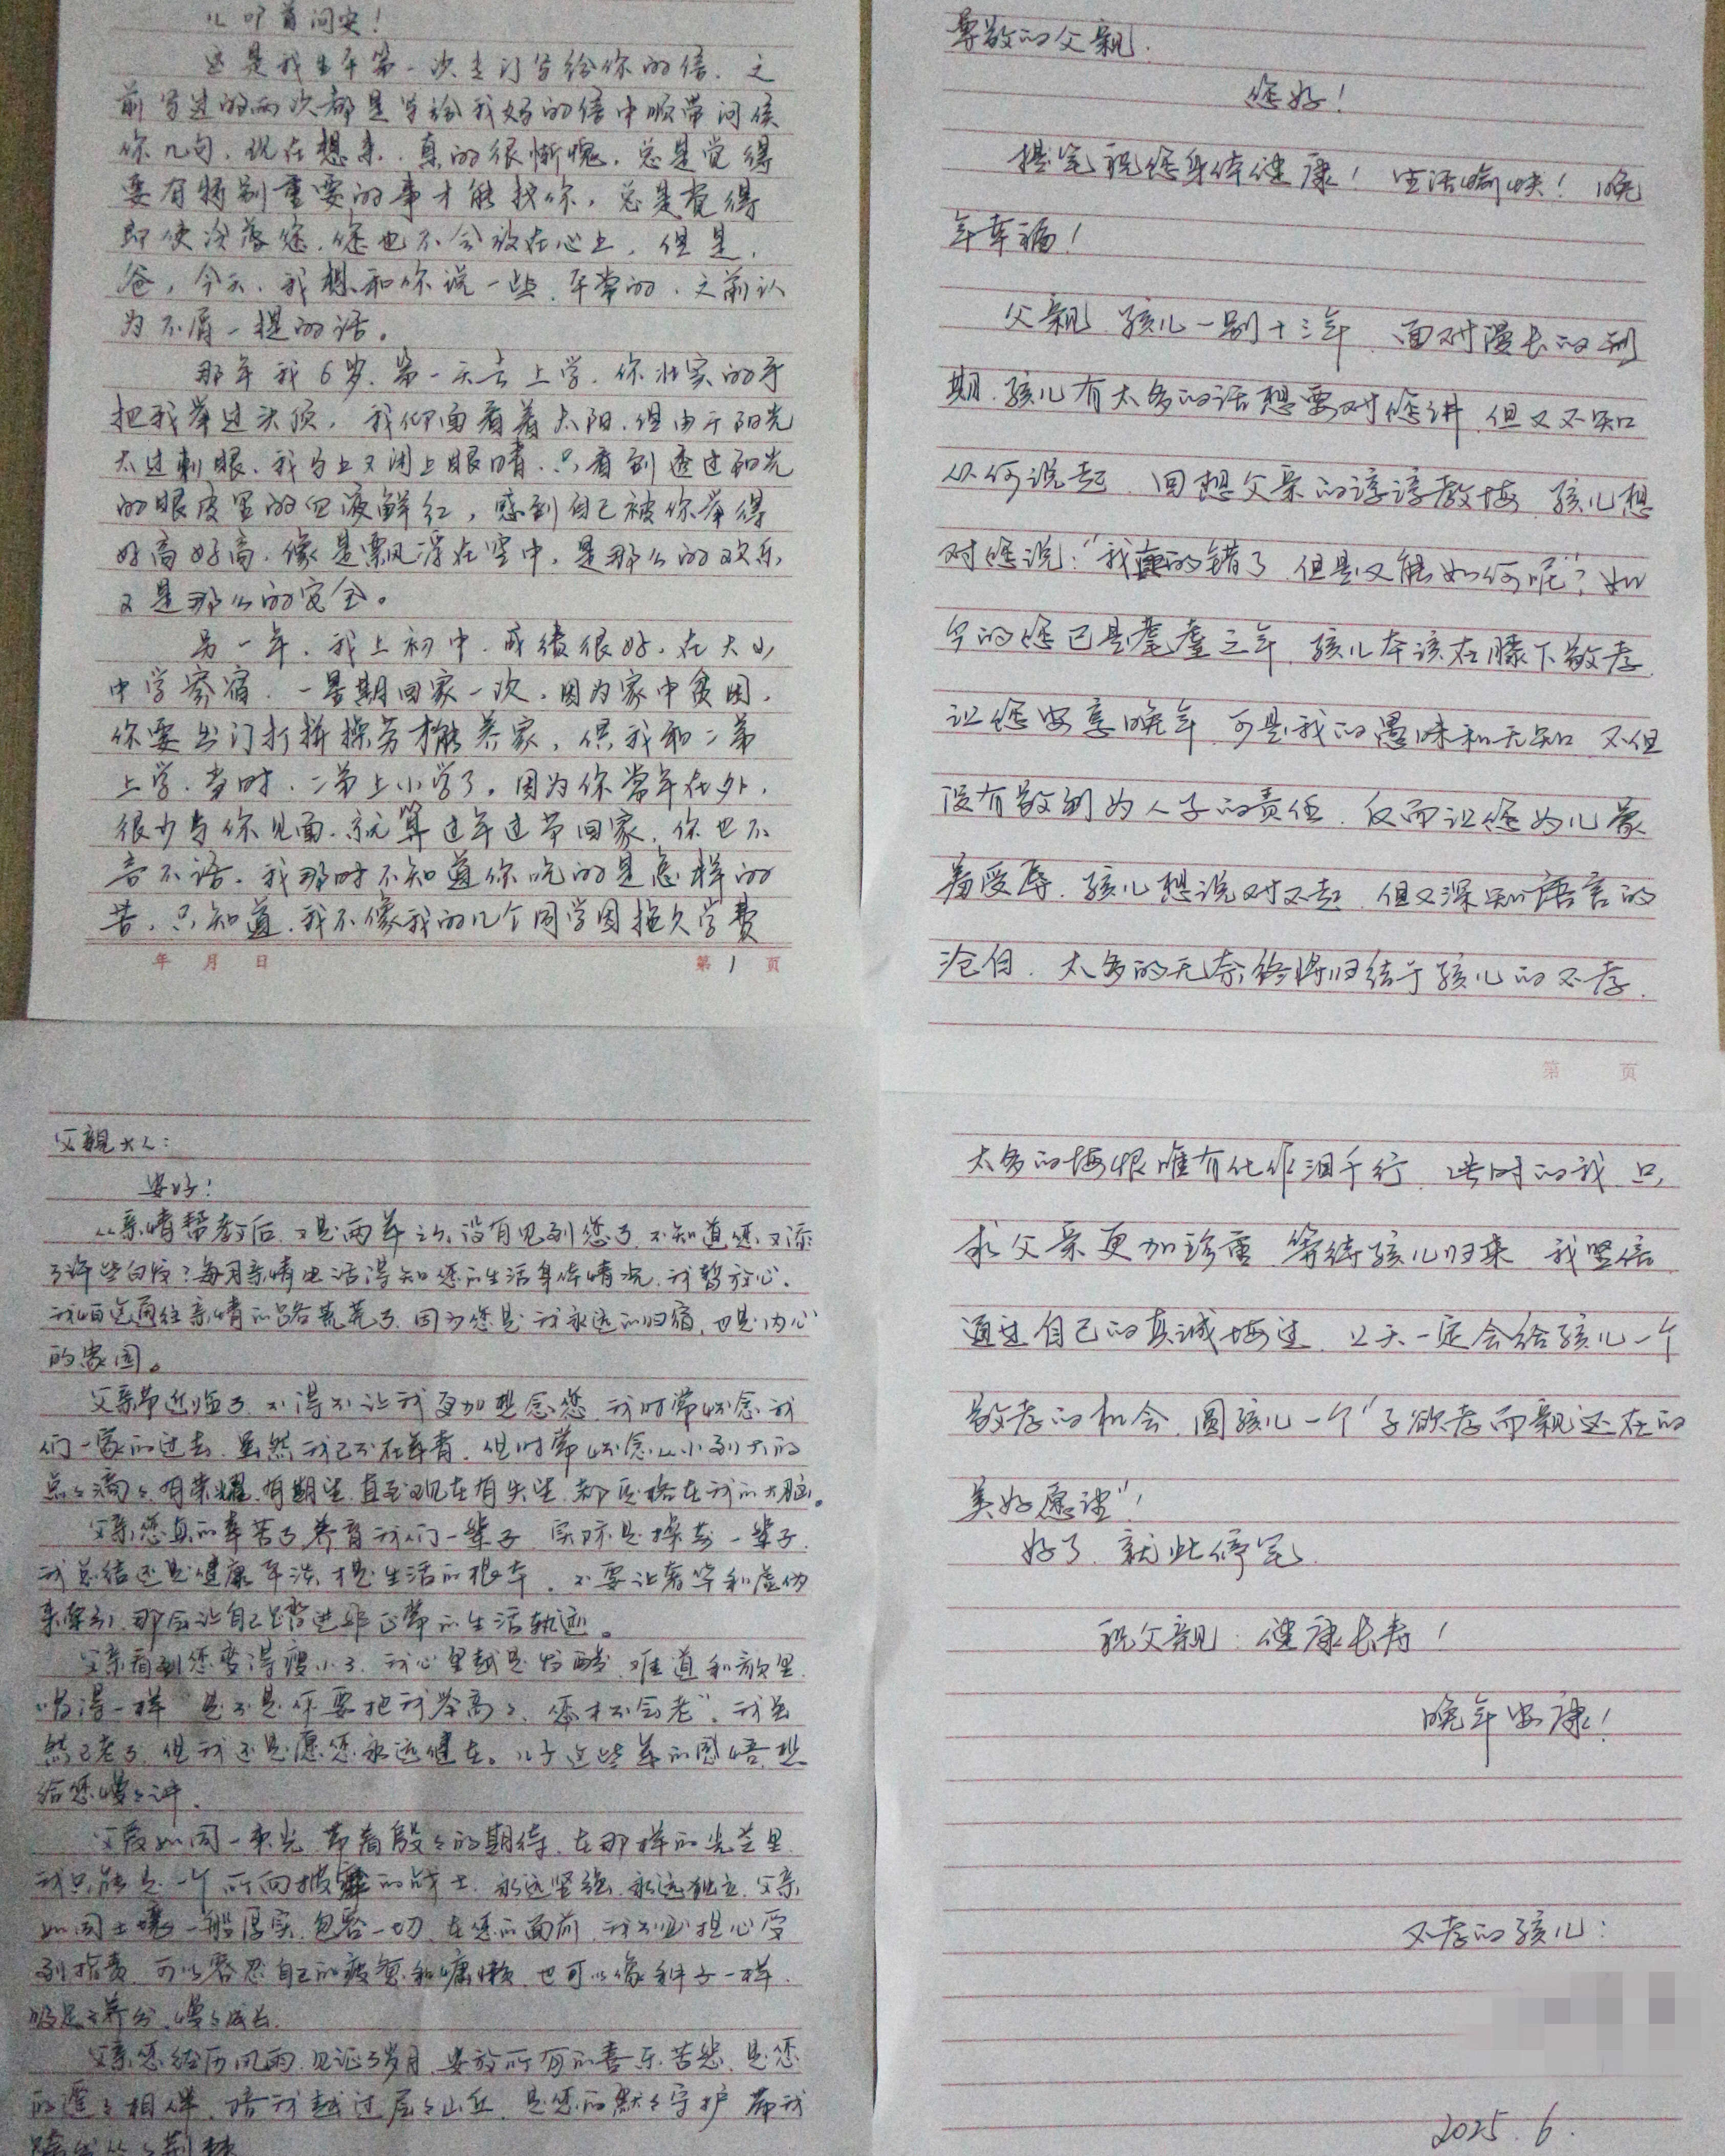 儿叩首问安！
这是我生平第一次专门写给你的信，之
前写过的两次都是写给我妈的信中顺带问候
你几句，现在想来，真的很惭愧，总是觉得
要有特别重要的事才能找你，总是觉得
即使冷落您，您也不会放在心上，但是，
爸，今天，我想和你说一些，平常的，之前认
为不屑一提的话。
那年我6岁，第一天去上学，你壮实的手
把我举过头顶，我仰面看着太阳，但由于阳光
太过刺眼，我马上又闭上眼睛，只看到透过阳光
的眼皮里的血液鲜红，感到自己被你举得
好高好高，像是飘浮在空中，是那么的欢乐，
又是那么的安全。
另一年，我上初中，成绩很好，在大山
中学寄宿，一星期回家一次，因为家中贫困，
你要出门打拼操劳才能养家，供我和二弟
上学，当时，二弟上小学了，因为你常年在外，
很少与你见面，就算过年过节回家，你也不
言不语，我那时不知道你吃的是怎样的
苦，只知道，我不像我的几个同学因拖欠学费
年 月 日 第1页
尊敬的父亲，
您好！
提笔祝您身体健康！生活愉快！晚
年幸福！
父亲，孩儿一别十三年，面对漫长的刑
期，孩儿有太多的话想要对您讲，但又不知
从何说起，回想父亲的谆谆教悔，孩儿想
对您说：“我真的错了，但是又能如何呢”？如
今的您已是耄耋之年，孩儿本该在膝下敬孝，
让您安享晚年，可是我的愚昧和无知，不但
没有敬到为人子的责任，反而让您为儿蒙
羞受辱，孩儿想说对不起，但又深知语言的
沧白，太多的无奈终将归结于孩儿的不孝，
第 页
父亲大人：
安好！
从亲情帮教后，又是两年之久没有见到您了，不知道您又添
了许些白发？每月亲情电话得知您的生活身体情况，我暂放心。
我怕这通往亲情的路荒芜了，因为您是我永远的归宿，也是内心
的家园。
父亲节近临了，不得不让我更加想念您，我时常怀念我
们一家的过去，虽然我已不在年青，但时常怀念从小到大的
点々滴々，有荣耀，有期望，直至现在有失望，都定格在我的大脑。
父亲您真的辛苦了，养育我们一辈子，实际是操劳一辈子，
我总结还是健康平淡，才是生活的根本，不要让奢华和虚伪
来牵引，那会让自己踏进非正常的生活轨迹。
父亲看到您变得瘦小了，我心里越是心酸，难道和歌里
唱得一样“是不是你要把我举高々，您才会老”，我虽
然已老了，但我还是愿您永远健在。儿子这些年的感悟，想
给您慢々讲，
父爱如同一束光，带着殷々的期待，在那样的光芒里，
我只能是一个所向披靡的战士，永远坚强，永远独立，父亲
如同土壤一般厚实，包容一切，在您的面前，我不必担心受
到指责，可以容忍自己的疲惫和慵懒，也可以像种子一样，
吸足养分，慢々成长，
父亲您经历风雨，见证了岁月，安放所有的喜乐苦愁，是您
的遥々相伴，陪我越过层々山丘，是您的默々守护，带我
太多的悔恨唯有化作泪千行，此时的我，只
求父亲更加珍重，等待孩儿归来，我坚信
通过自己的真诚悔过，上天一定会给孩儿一个
敬孝的机会，圆孩儿一个“子欲孝而亲还在的
美好愿望”！
好了，就此停笔，
祝父亲：健康长寿！
晚年安康！
不孝的孩儿：
2025.6.